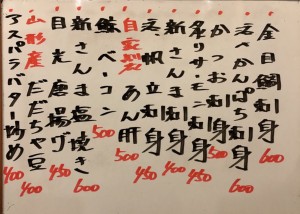 金目鯛刺身 600
えべかんぱち刺身 600
かつお刺身 450
名リサーモン刺身 500
新さんま刺身 400
生帆立刺身 450
自家製 あん肝 500
鯨ベーコン 500
新さんま塩焼き 600
目光唐揚げ 450
山形産だだちゃ豆 400
アスパラバター炒め 400